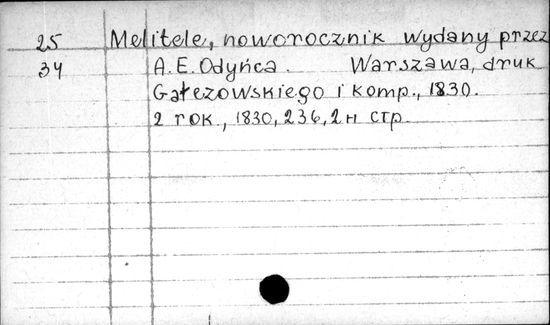 25 Melitele, noworocznik wydany przez
34 A. E. Odyńca. Warszawa, druk
Gałęzowskiego i komp., 1830.
2 rok., 1830, 236, 2 н стр.